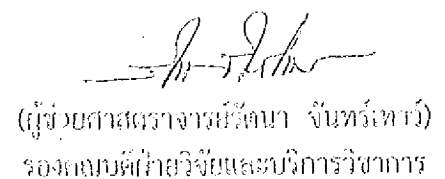 (ผู้ช่วยศาสตราจารย์รัตนา จันทร์เทาว์)
รองคณบดีฝ่ายวิจัยและบริการวิชาการ